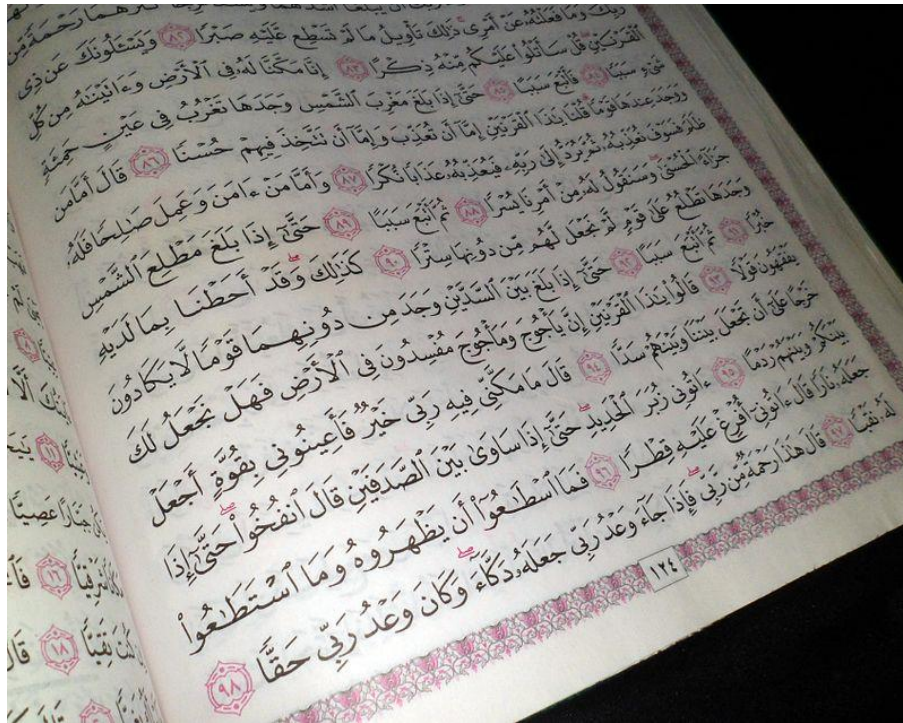 رَبِّكَ وَمَا فَعَلْتُهُۥ عَنْ أَمْرِى ذَٰلِكَ تَأْوِيلُ مَا لَمْ تَسْطِع عَّلَيْهِ صَبْرًا ٨٢ وَيَسْـَٔلُونَكَ عَن ذِى
ٱلْقَرْنَيْنِ قُلْ سَأَتْلُوا۟ عَلَيْكُم مِّنْهُ ذِكْرًا ٨٣ إِنَّا مَكَّنَّا لَهُۥ فِى ٱلْأَرْضِ وَءَاتَيْنَٰهُ مِن كُلِّ
شَىْءٍ سَبَبًا ٨٤ فَأَتْبَعَ سَبَبًا ٨٥ حَتَّىٰٓ إِذَا بَلَغَ مَغْرِبَ ٱلشَّمْسِ وَجَدَهَا تَغْرُبُ فِى عَيْنٍ حَمِئَةٍ
وَوَجَدَ عِندَهَا قَوْمًا قُلْنَا يَٰذَا ٱلْقَرْنَيْنِ إِمَّآ أَن تُعَذِّبَ وَإِمَّآ أَن تَتَّخِذَ فِيهِمْ حُسْنًا ٨٦ قَالَ أَمَّا مَن
ظَلَمَ فَسَوْفَ نُعَذِّبُهُۥ ثُمَّ يُرَدُّ إِلَىٰ رَبِّهِۦ فَيُعَذِّبُهُۥ عَذَابًا نُّكْرًا ٨٧ وَأَمَّا مَنْ ءَامَنَ وَعَمِلَ صَٰلِحًا فَلَهُۥ
جَزَآءً ٱلْحُسْنَىٰ وَسَنَقُولُ لَهُۥ مِنْ أَمْرِنَا يُسْرًا ٨٨ ثُمَّ أَتْبَعَ سَبَبًا ٨٩ حَتَّىٰٓ إِذَا بَلَغَ مَطْلِعَ ٱلشَّمْسِ
وَجَدَهَا تَطْلُعُ عَلَىٰ قَوْمٍ لَّمْ نَجْعَل لَّهُم مِّن دُونِهَا سِتْرًا ٩٠ كَذَٰلِكَ وَقَدْ أَحَطْنَا بِمَا لَدَيْهِ
خُبْرًا ٩١ ثُمَّ أَتْبَعَ سَبَبًا ٩٢ حَتَّىٰٓ إِذَا بَلَغَ بَيْنَ ٱلسَّدَّيْنِ وَجَدَ مِن دُونِهِمَا قَوْمًا لَّا يَكَادُونَ
يَفْقَهُونَ قَوْلًا ٩٣ قَالُوا۟ يَٰذَا ٱلْقَرْنَيْنِ إِنَّ يَأْجُوجَ وَمَأْجُوجَ مُفْسِدُونَ فِى ٱلْأَرْضِ فَهَلْ نَجْعَلُ لَكَ
خَرْجًا عَلَىٰٓ أَن تَجْعَلَ بَيْنَنَا وَبَيْنَهُمْ سَدًّا ٩٤ قَالَ مَا مَكَّنِّى فِيهِ رَبِّى خَيْرٌ فَأَعِينُونِى بِقُوَّةٍ أَجْعَلْ
بَيْنَكُمْ وَبَيْنَهُمْ رَدْمًا ٩٥ ءَاتُونِى زُبَرَ ٱلْحَدِيدِ حَتَّىٰٓ إِذَا سَاوَىٰ بَيْنَ ٱلصَّدَفَيْنِ قَالَ ٱنفُخُوا۟ حَتَّىٰٓ إِذَا
جَعَلَهُۥ نَارًا قَالَ ءَاتُونِىٓ أُفْرِغْ عَلَيْهِ قِطْرًا ٩٦ فَمَا ٱسْطَٰعُوٓا۟ أَن يَظْهَرُوهُ وَمَا ٱسْتَطَٰعُوا۟
لَهُۥ نَقْبًا ٩٧ قَالَ هَٰذَا رَحْمَةٌ مِّن رَّبِّى فَإِذَا جَآءَ وَعْدُ رَبِّى جَعَلَهُۥ دَكَّآءَ وَكَانَ وَعْدُ رَبِّى حَقًّا ٩٨
١٢٤